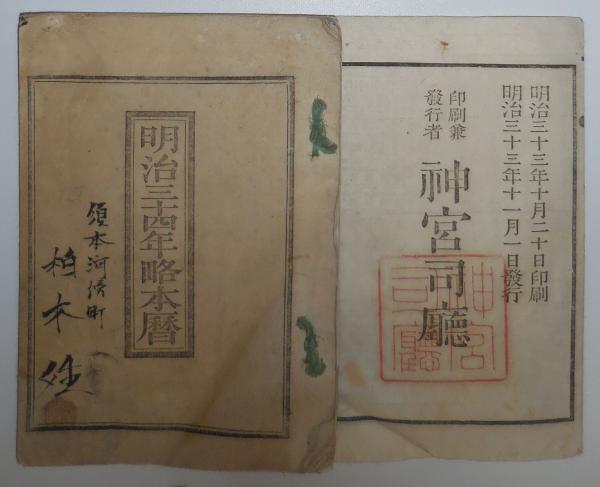 明治三十四年略本暦
須本河傍町
柏木姓
明治三十三年十月二十日印刷
明治三十三年十一月一日發行
印刷兼
發行者
神宮司廳
神宮
司廳